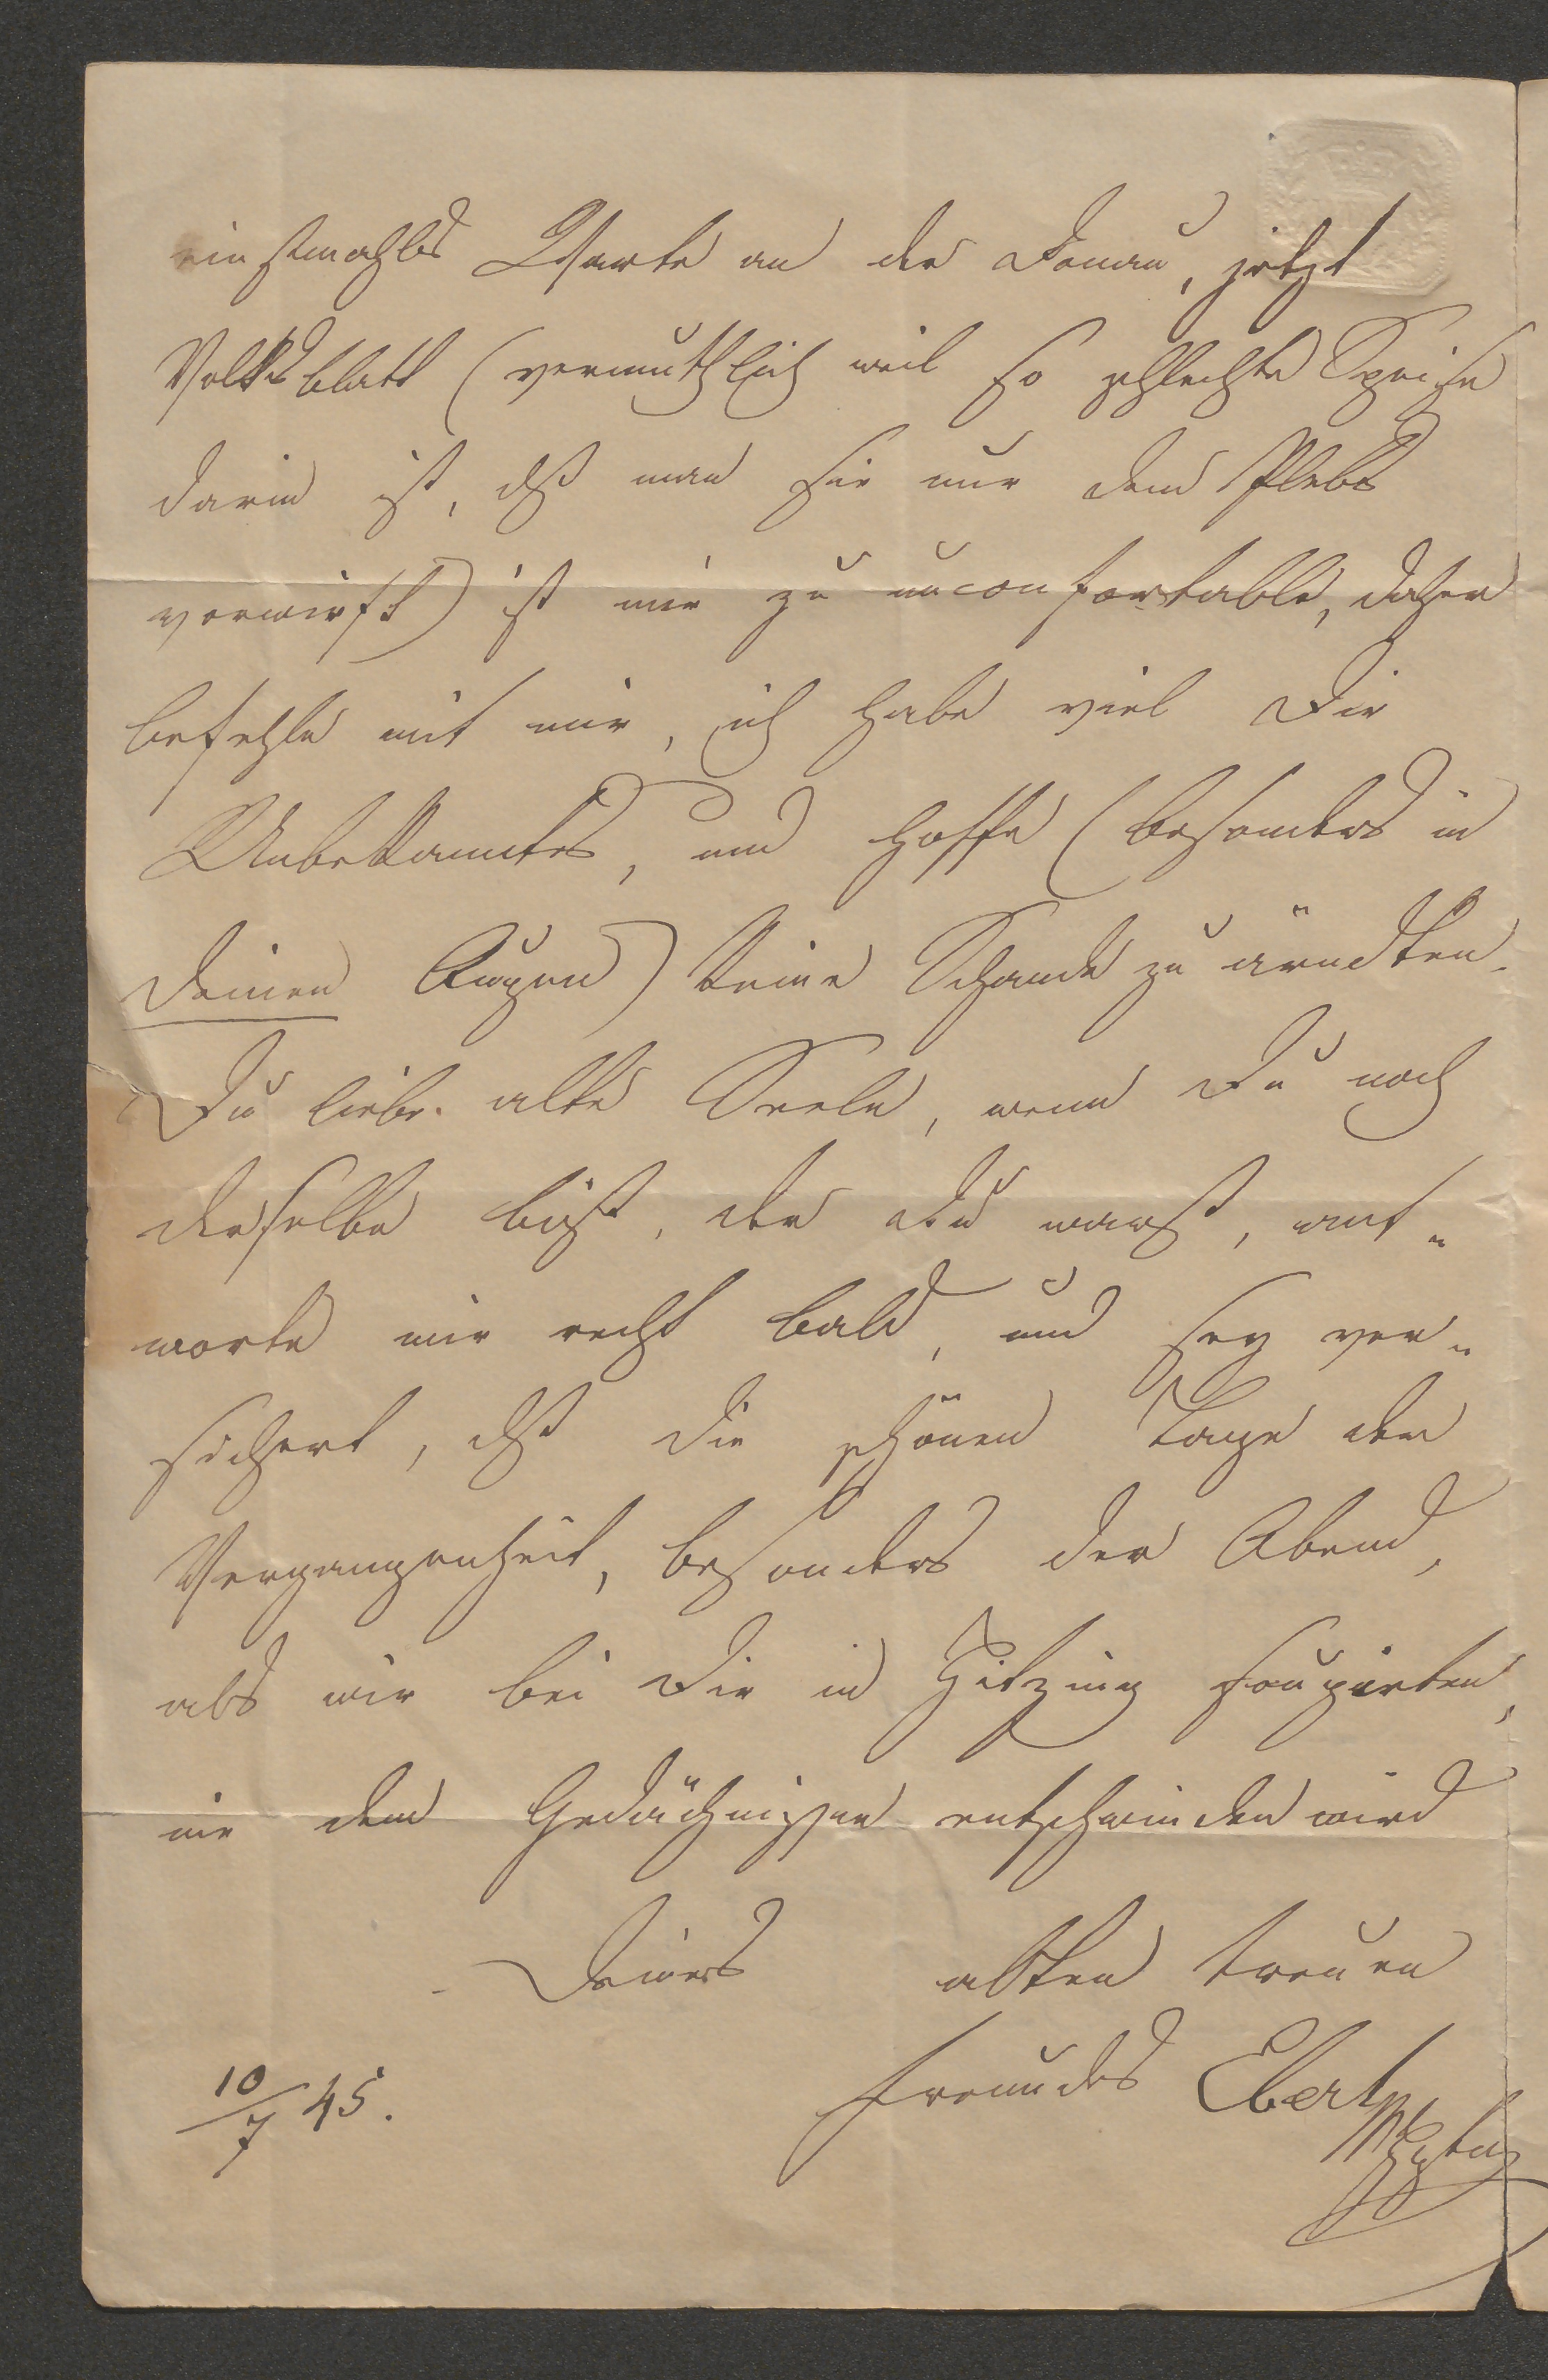 einstmahls Warte an der Donau, jetzt
Volksblatt (vermuthlich weil so schlechte Speise
darin ist, dß man sie nur dem Plebs
vorwirft) ist mir zu unconfortable, daher
befehle mit mir, ich habe viel Dir
Unbekanntes, und hoffe (besonders in
Deinen Augen) keine Schande zu ärndten.
Du liebe alte Seele, wenn Du noch
derselbe bist, der Du warst, ant-
worte mir recht bald, und sey ver-
sichert, dß die schönen Tage der
Vergangenheit, besonders der Abend,
als wir bei Dir in Hitzing soupirten,
nie dem Gedächnisse entschwinden wird
Deines alten treuen
Freundes Ebert
10/7 45.